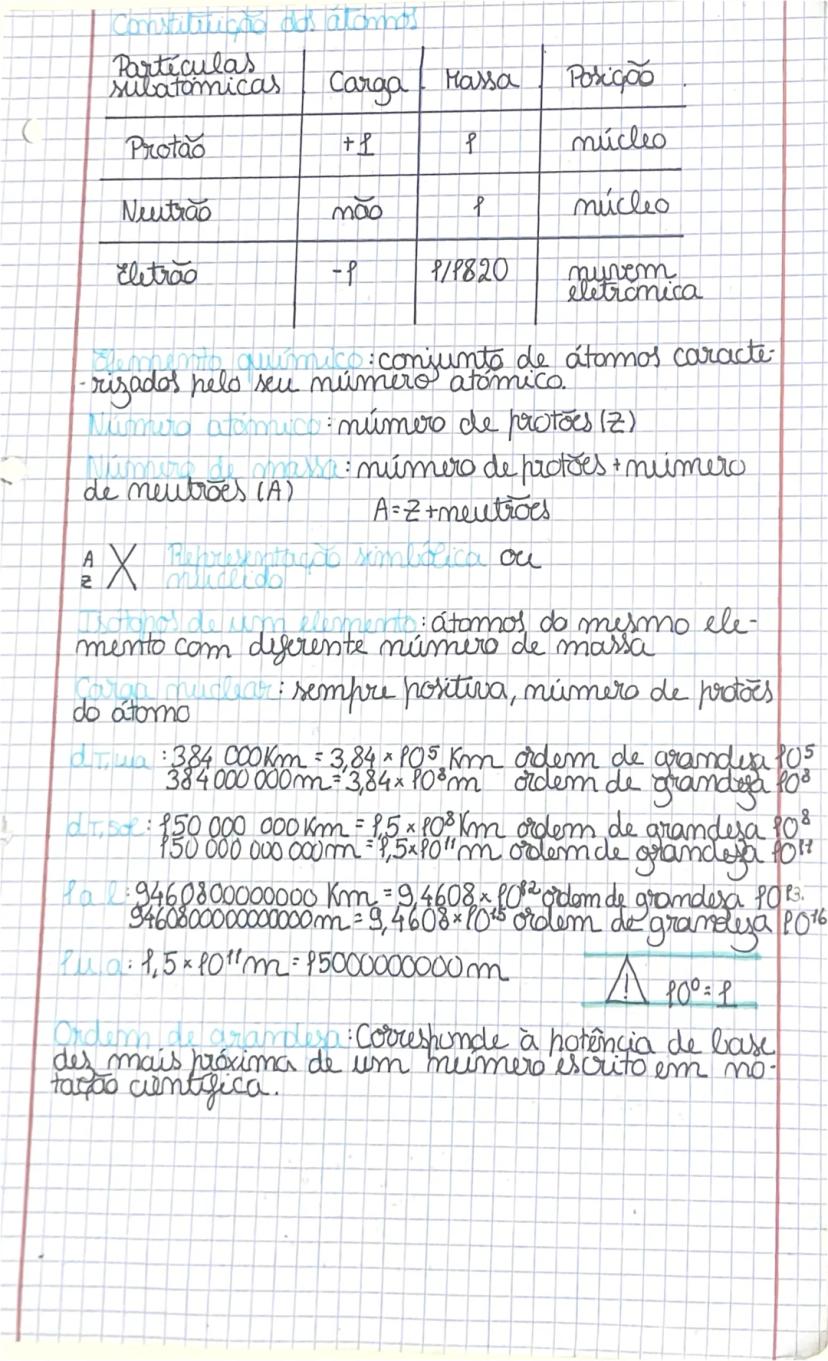 Constituição dos átomos
Partículas subatómicas | Carga | Massa | Posição
Protão | +1 | 1 | núcleo
Neutrão | não | 1 | núcleo
Eletrão | -1 | 1/1820 | nuvem eletrónica
Elemento químico: conjunto de átomos caracte-
-rizados pelo seu número atómico.
Número atómico: número de protões (Z)
Número de massa: número de protões + número
de neutrões (A)
A=Z+neutrões
A Z X Representação simbólica ou
nuclído
Isótopos de um elemento: átomos do mesmo ele-
mento com diferente número de massa
Carga nuclear: sempre positiva, número de protões
do átomo
dT,Lua: 384 000Km = 3,84 × 10⁵ Km ordem de grandesa 10⁵
384 000 000m = 3,84 × 10⁸m ordem de grandesa 10⁸
dT,Sol: 150 000 000 Km = 1,5 × 10⁸ Km ordem de grandesa 10⁸
150 000 000 000m = 1,5×10¹¹m ordem de grandesa 10¹¹
1 a l: 9460800000000 Km = 9,4608 × 10¹² ordem de grandesa 10¹³.
946080000000000m = 9,4608 × 10¹⁵ ordem de grandesa 10¹⁶
1 u.a: 1,5 × 10¹¹m = 15000000000m
! 10⁰ = 1
Ordem de grandesa: Corresponde à potência de base
des mais próxima de um número escrito em no-
tação científica.